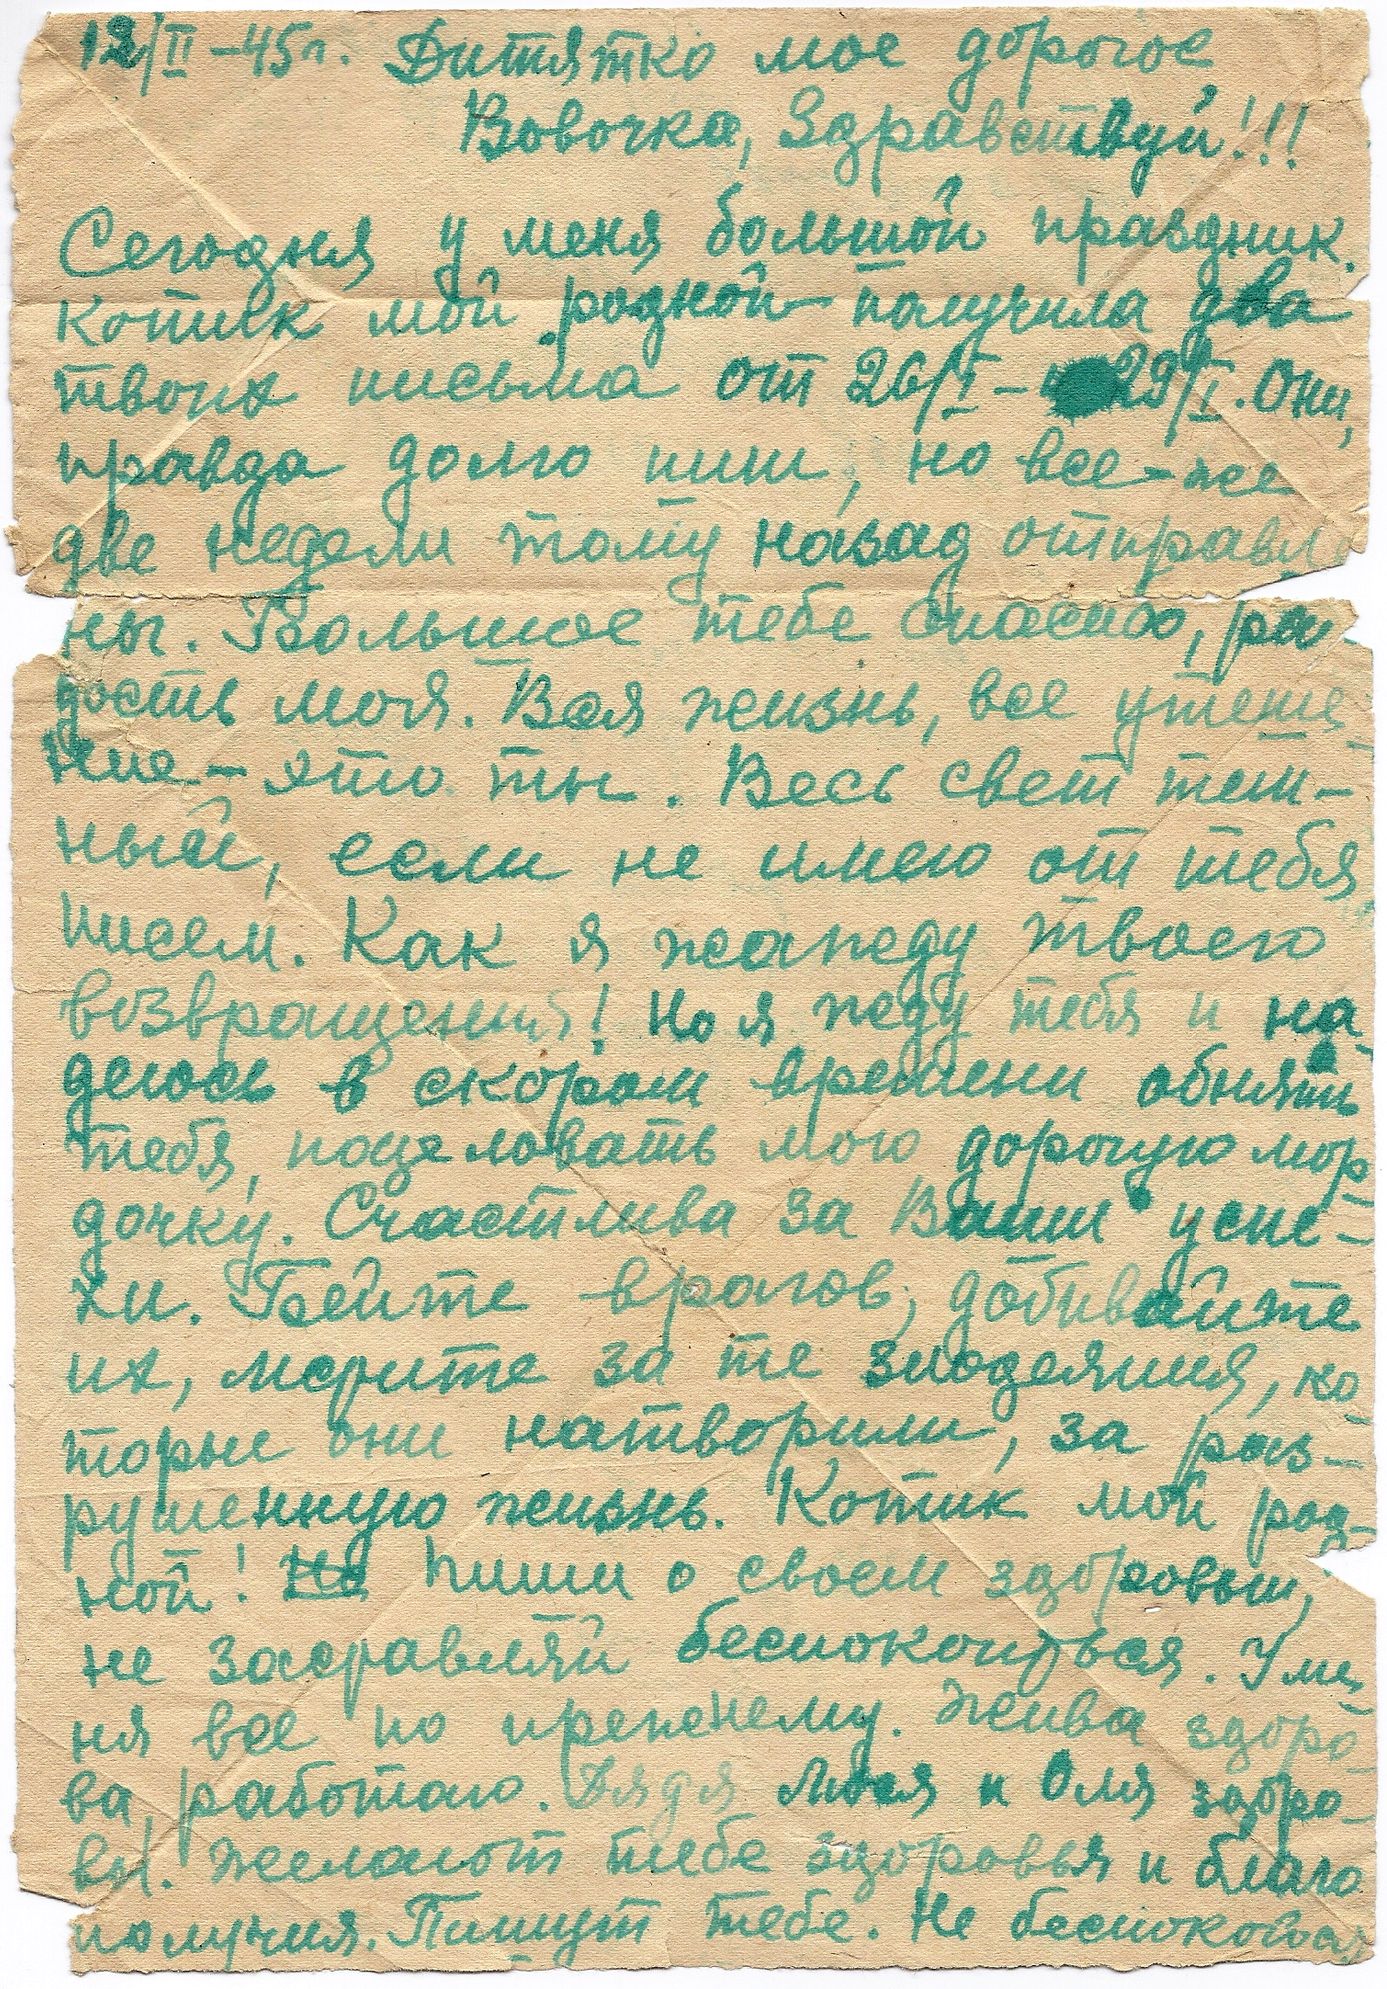 12/II –45г. Дитятко мое дорогое
Вовочка, Здравствуй!!!
Сегодня у меня большой праздник.
Котик мой родной получила два
твоих письма от 26/I – 29/I. Они,
правда долго шли, но все-же
две недели тому назад отправле
ны. Большое тебе спасибо, ра
дость моя. Вся жизнь, все утеше
ние – это ты. Весь свет тем–
ный, если не имею от тебя
писем. Как я жажду твоего
возвращения! Но я жду тебя и на–
деюсь в скором времени обнять
тебя, поцеловать мою дорогую мор–
дочку. Счастлива за Ваши успе–
хи. Бейте врагов, добивайте
их, мстите за те злодеяния, ко
торые они натворили, за раз–
рушенную жизнь. Котик мой род–
ной! Пиши о своем здоровьи,
не заставляй беспокоиться. У ме–
ня все по прежнему. Жива здоро–
ва, работаю. Дядя Мося и Оля здоро–
вы. Желают тебе здоровья и благо
получия. Пишут тебе. Не беспокойся